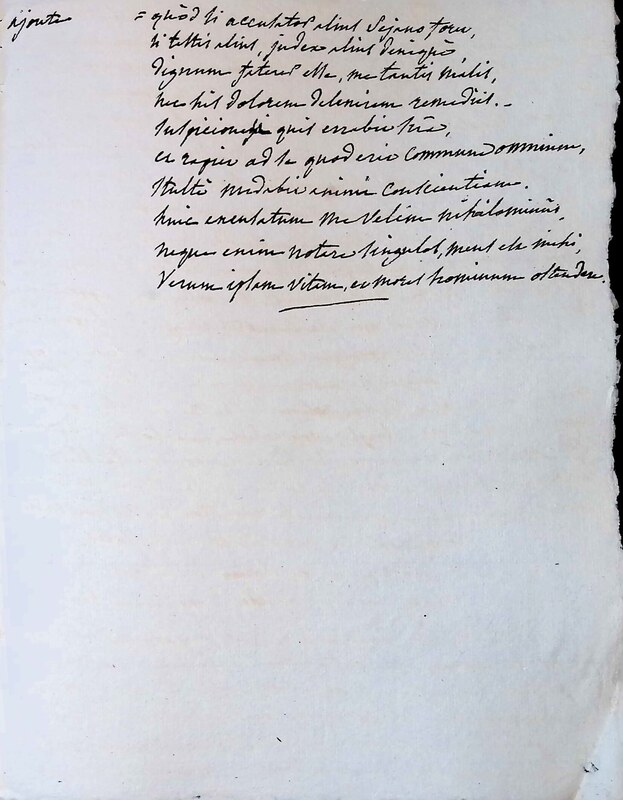 ajoute = quòd si accusator alius Sejano foret,
si testis alius, judex alius denique
dignum faterer esse, me tantis malis,
nec his dolorem delenirem remediis.-
suspicione quis errabit suâ,
et rapiet ad se quod erit commune omnium,
stultè nudabit animi conscientiam.
huic excusatum me velim nihilominùs,
neque enim notare singulos, mens est mihi,
Verum ipsam vitam, et mores hominum ostendere.